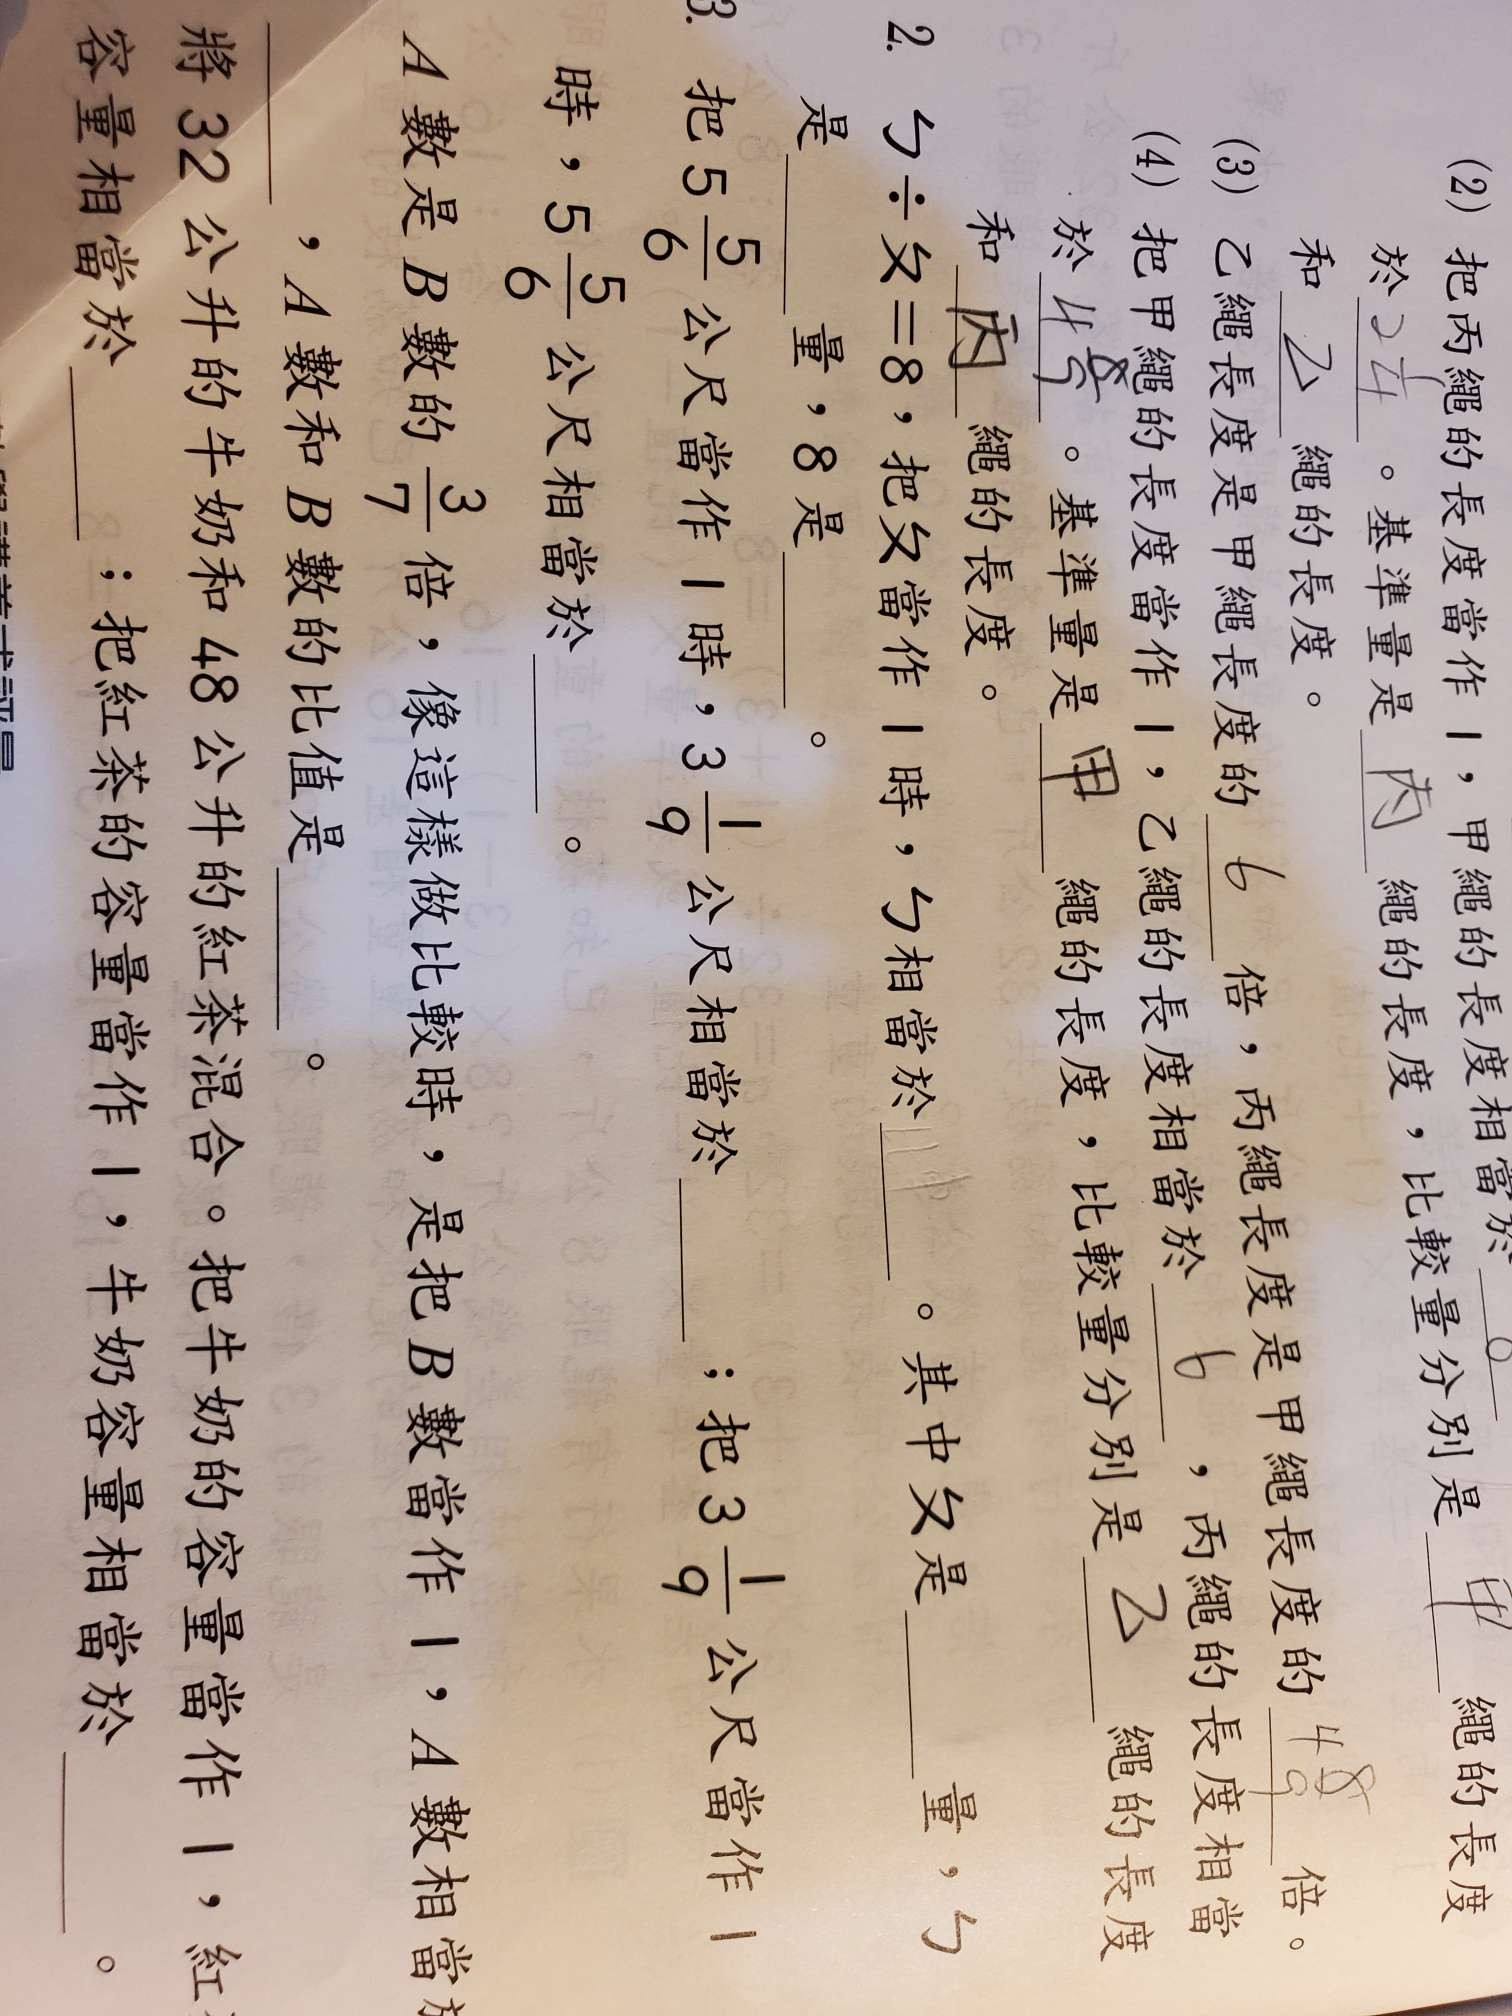 (2) 把丙繩的長度當作1，甲繩的長度相當於
於 2 1/4 。基準量是 丙 繩的長度，比較量分別是 甲 繩的長度
和 乙 繩的長度。
(3) 乙繩長度是甲繩長度的 6 倍，丙繩長度是甲繩長度的 4 8/9 倍。
(4) 把甲繩的長度當作1，乙繩的長度相當於 6 ，丙繩的長度相當
於 4 8/9 。基準量是 甲 繩的長度，比較量分別是 乙 繩的長度
和 丙 繩的長度。
2. ㄅ÷ㄆ=8，把ㄆ當作1時，ㄅ相當於____。其中ㄆ是____量，ㄅ
是____量，8是____。
3. 把5 5/6 公尺當作1時，3 1/9 公尺相當於____；把3 1/9 公尺當作1
時，5 5/6 公尺相當於____。
A數是B數的 3/7 倍，像這樣做比較時，是把B數當作1，A數相當
____，A數和B數的比值是____。
將32公升的牛奶和48公升的紅茶混合。把牛奶的容量當作1，紅
容量相當於____；把紅茶的容量當作1，牛奶容量相當於____。